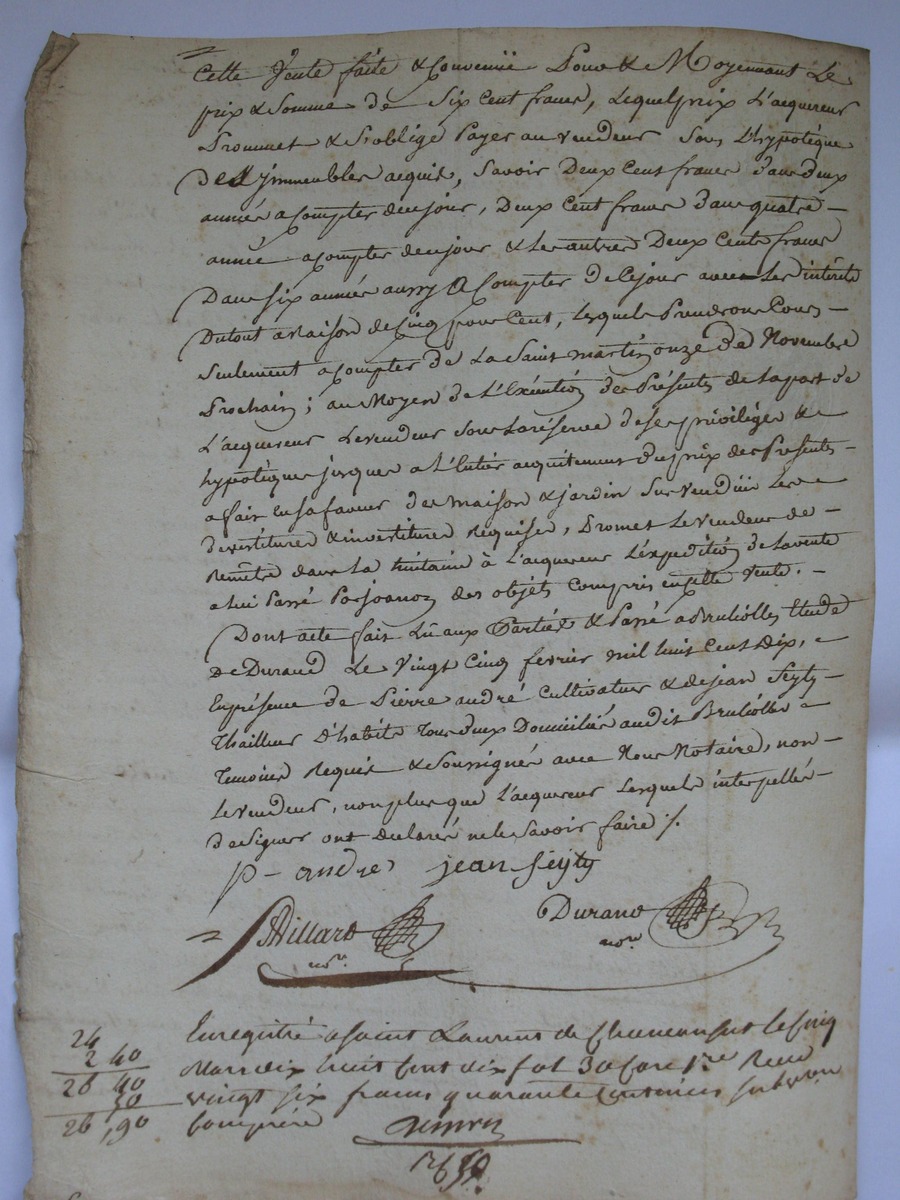 Cette Vente faite & Convenüe Pour & Moyennant Le
prix & Somme de Six Cent francs, Lequel prix L'acquereur
Prommet & S'oblige Payer au vendeur Sous L'hypotèque
Des jmmeubles acquis, Savoir Deux Cent francs dans deux
année a Compter de ce jour, Deux Cent francs dans quatre –
année a Compter de ce jour & Les autres Deux Cents francs
Dans Six année aussy a Compter de Ce jour avec Les intérêts
Du tout a Raison de Cinq pour Cent, Lesquels Prendrons Cours –
Seulement a Compter de La Saint martin onze de Novembre
Prochain; au Moyen de L'Exécution des Présentes de La part de
L'acquereur Le vendeur Sous La réserve de Ses privilèges &
hypotèque jusques a L'Entier acquitement du prix des Presentes –
a fait En Sa faveur des maison & jardin Sus Vendüe Les
devestitures & investitures Requises, Promet Le vendeur de –
Remêtre dans La huitaine à L'acquereur L'expedition de La vente
a Lui Passé Par joanon des objéts Compris en cette Vente. –
Dont acte fait Lû aux Parties & Passé a Brulliolles Etude
De Durand Le Vingt Cinq fevrier mil huit Cent Dix,
En présence de Pierre andré Cultivateur & de jean Seyty –
Thailleur D'habits Tous deux Domiciliés audit Brulliolles
Temoins Requis & Soussignés avec Nous Notaire, non –
Le vendeur, non plus que L'acquereur Lesquels interpellés –
de Signer ont declarés ne le Savoir faire /.
p – andre jean Seyty
Durand
Billard
nore
nore
Enregistré a Saint Laurent de Chamousset le cinq
24
2 40
Mars dix huit Cent dix fol 30 Case 1re Recu
26 40
50
vingt six francs quarante Centimes
26,90
Comprise
26 90